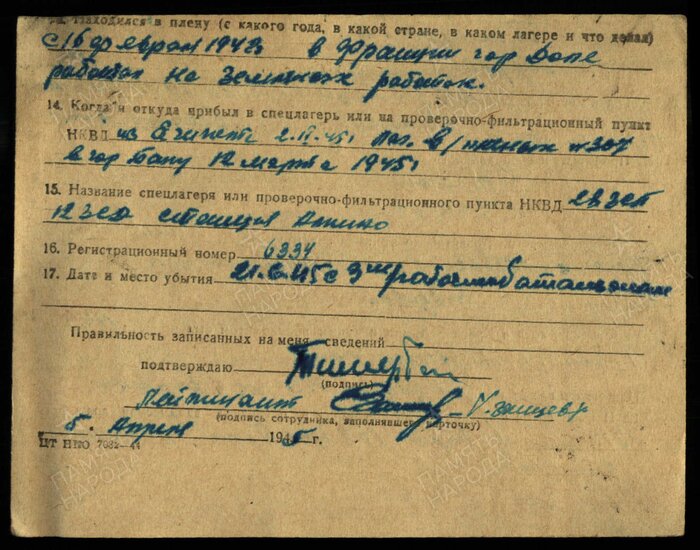 Находился в плену (с какого года, в какой стране, в каком лагере и что делал)
с 16 февраля 1943г в Франции гор Доле
работал на земляных работах.
14. Когда и откуда прибыл в спецлагерь или на проверочно-фильтрационный пункт
НКВД из Египета 2.II.45г
в гор Баку 12 марта 1945г
15. Название спецлагеря или проверочно-фильтрационного пункта НКВД 28 ЗСП
12 ЗСД станция
16. Регистрационный номер 6334
17. Дата и место убытия 21.6.45 с 3м рабочим батальоном
Правильность записанных на меня сведений
подтверждаю
(подпись)
Лейтинант
(подпись сотрудника, заполнявшего карточку)
5. Апреля 1945 г.
ЦТ НКО 7032-44
ПАМЯТЬ НАРОДА